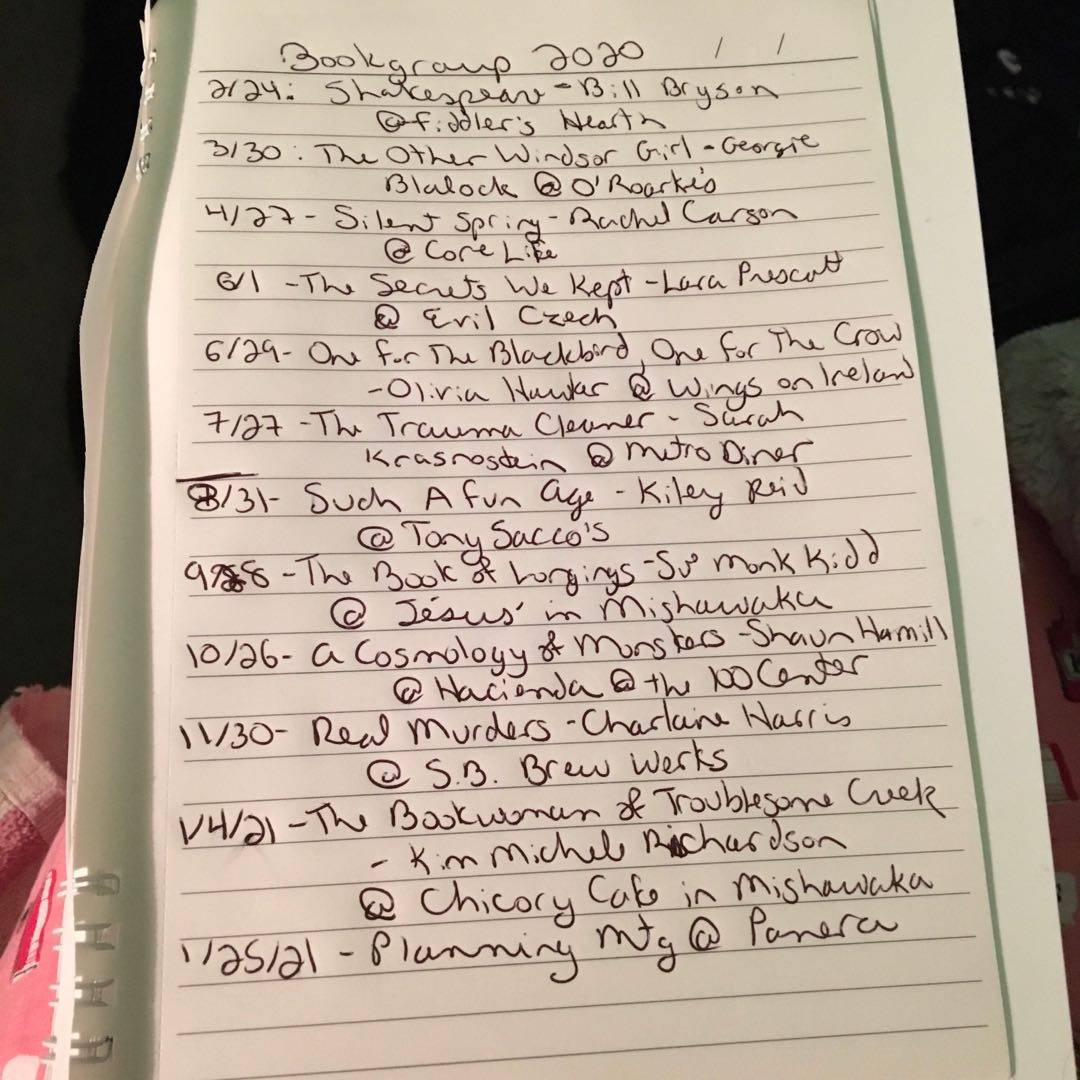 Bookgroup 2020 / /
2/24: Shakespeare - Bill Bryson
@ Fiddler's Hearth
3/30: The Other Windsor Girl - Georgie
Blalock @ O'Roarke's
4/27 - Silent Spring - Rachel Carson
@ Core Life
6/1 - The Secrets We Kept - Lara Prescott
@ Evil Czech
6/29 - One for The Blackbird, One for The Crow
- Olivia Hawker @ Wings on Ireland
7/27 - The Trauma Cleaner - Sarah
Krasnostein @ Metro Diner
8/31 - Such A fun age - Kiley Reid
@ Tony Sacco's
- The Book of Longings - Sue Monk Kidd
@ Jésus' in Mishawaka
10/26 - a Cosmology of Monsters - Shaun Hamill
@ Hacienda @ the 100 Center
11/30 - Real Murders - Charlaine Harris
@ S.B. Brew Werks
1/4/21 - The Bookwoman of Troublesome Creek
- Kim Michele Richardson
@ Chicory Cafe in Mishawaka
1/25/21 - Planning mtg @ Panera